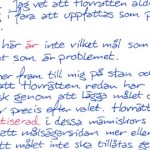 jag vet att Horrätten aldr
i fara att uppfattas som p
här är inte vilket mål som
nt som är problemet.
mer fram till mig på stan oc
att Horrätten redan har
sk genom att lägga målet
i precis efter valet. Horrätt
tiserad i dessa människors
ett målsägarsidan mer eller
ått målet inte ska tillåtas